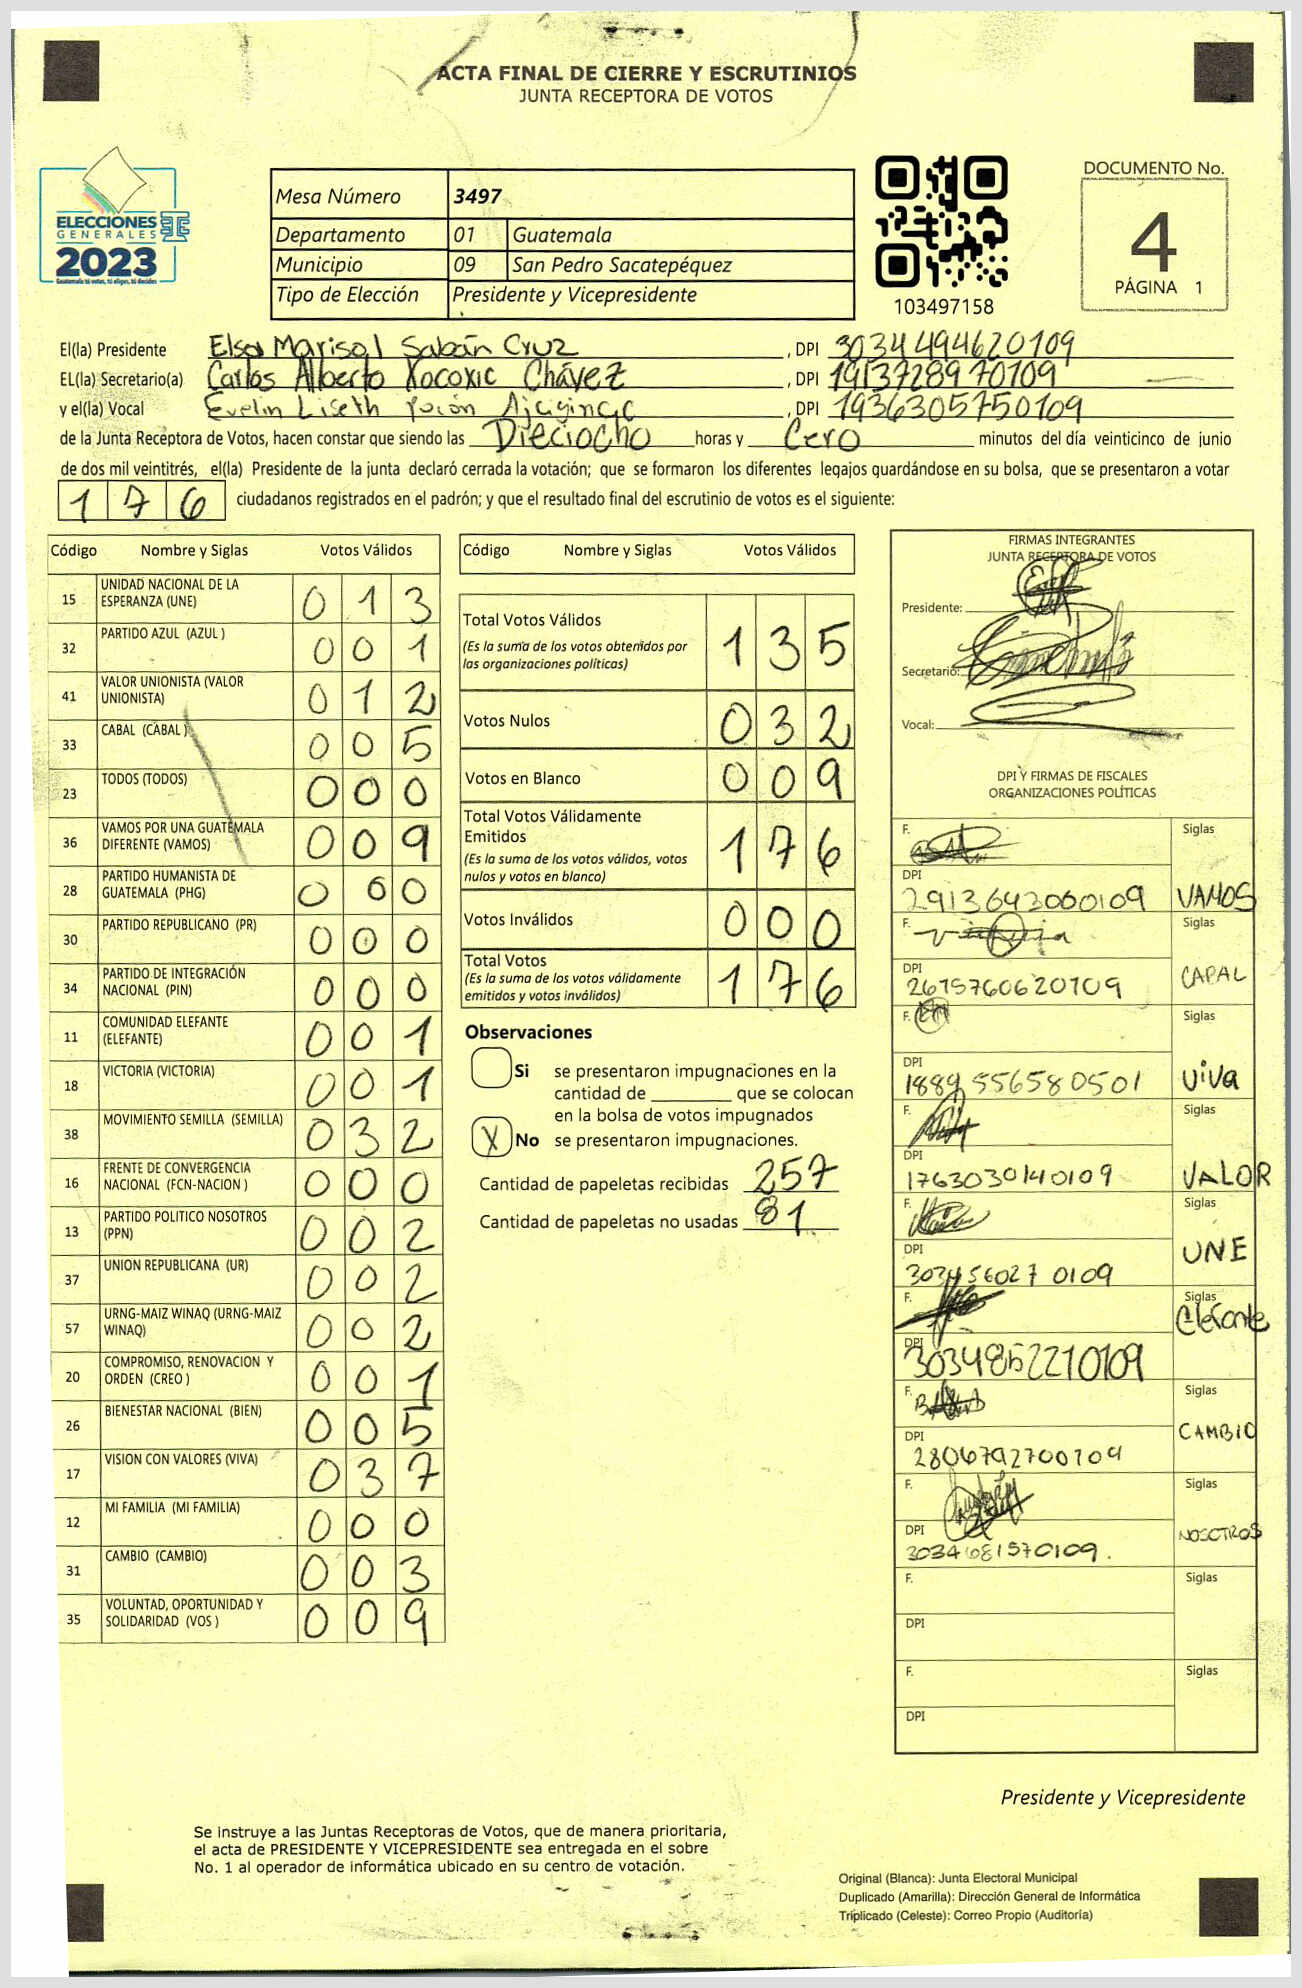 ACTA FINAL DE CIERRE Y ESCRUTINIOS
JUNTA RECEPTORA DE VOTOS
ELECCIONES
GENERALES
2023
Guatemala tú votas, tú eliges, tú decides
Mesa Número 3497
Departamento 01 Guatemala
Municipio 09 San Pedro Sacatepéquez
Tipo de Elección Presidente y Vicepresidente
103497158
DOCUMENTO No.
4
PÁGINA 1
El(la) Presidente Elsa Marisol Sabán Cruz , DPI 3034494620109
EL(la) Secretario(a) Carlos Alberto Xocoxic Chávez , DPI 1913728970109
y el(la) Vocal Evelin Liseth , DPI 1936305750109
de la Junta Receptora de Votos, hacen constar que siendo las Dieciocho horas y Cero minutos del día veinticinco de junio
de dos mil veintitrés, el(la) Presidente de la junta declaró cerrada la votación; que se formaron los diferentes legajos guardándose en su bolsa, que se presentaron a votar
1 7 6 ciudadanos registrados en el padrón; y que el resultado final del escrutinio de votos es el siguiente:
Código Nombre y Siglas Votos Válidos
15 UNIDAD NACIONAL DE LA ESPERANZA (UNE) 0 1 3
32 PARTIDO AZUL (AZUL ) 0 0 1
41 VALOR UNIONISTA (VALOR UNIONISTA) 0 1 2
33 CABAL (CABAL ) 0 0 5
23 TODOS (TODOS) 0 0 0
36 VAMOS POR UNA GUATEMALA DIFERENTE (VAMOS) 0 0 9
28 PARTIDO HUMANISTA DE GUATEMALA (PHG) 0 0 0
30 PARTIDO REPUBLICANO (PR) 0 0 0
34 PARTIDO DE INTEGRACIÓN NACIONAL (PIN) 0 0 0
11 COMUNIDAD ELEFANTE (ELEFANTE) 0 0 1
18 VICTORIA (VICTORIA) 0 0 1
38 MOVIMIENTO SEMILLA (SEMILLA) 0 3 2
16 FRENTE DE CONVERGENCIA NACIONAL (FCN-NACION ) 0 0 0
13 PARTIDO POLITICO NOSOTROS (PPN) 0 0 2
37 UNION REPUBLICANA (UR) 0 0 2
57 URNG-MAIZ WINAQ (URNG-MAIZ WINAQ) 0 0 2
20 COMPROMISO, RENOVACION Y ORDEN (CREO ) 0 0 1
26 BIENESTAR NACIONAL (BIEN) 0 0 5
17 VISION CON VALORES (VIVA) 0 3 7
12 MI FAMILIA (MI FAMILIA) 0 0 0
31 CAMBIO (CAMBIO) 0 0 3
35 VOLUNTAD, OPORTUNIDAD Y SOLIDARIDAD (VOS ) 0 0 9
Código Nombre y Siglas Votos Válidos
Total Votos Válidos 1 3 5
(Es la suma de los votos obtenidos por
las organizaciones políticas)
Votos Nulos 0 3 2
Votos en Blanco 0 0 9
Total Votos Válidamente
Emitidos 1 7 6
(Es la suma de los votos válidos, votos
nulos y votos en blanco)
Votos Inválidos 0 0 0
Total Votos 1 7 6
(Es la suma de los votos válidamente
emitidos y votos inválidos)
Observaciones
Si se presentaron impugnaciones en la
cantidad de ________ que se colocan
en la bolsa de votos impugnados
X No se presentaron impugnaciones.
Cantidad de papeletas recibidas 257
Cantidad de papeletas no usadas 81
FIRMAS INTEGRANTES
JUNTA RECEPTORA DE VOTOS
Presidente:
Secretario:
Vocal:
DPI Y FIRMAS DE FISCALES
ORGANIZACIONES POLÍTICAS
F. Siglas
DPI
2913642060109 VAMOS
F. Siglas
DPI
2615760620109 CAPAL
F. Siglas
DPI
1889556580501 viva
F. Siglas
DPI
1763030140109 VALOR
F. Siglas
DPI
3034560270109 UNE
F. Siglas
DPI Elefante
3034852210109
F. Siglas
DPI CAMBIO
2806792700109
F. Siglas
DPI NOSOTROS
3034681570109.
F. Siglas
DPI
F. Siglas
DPI
Presidente y Vicepresidente
Se instruye a las Juntas Receptoras de Votos, que de manera prioritaria,
el acta de PRESIDENTE Y VICEPRESIDENTE sea entregada en el sobre
No. 1 al operador de informática ubicado en su centro de votación.
Original (Blanca): Junta Electoral Municipal
Duplicado (Amarilla): Dirección General de Informática
Triplicado (Celeste): Correo Propio (Auditoría)